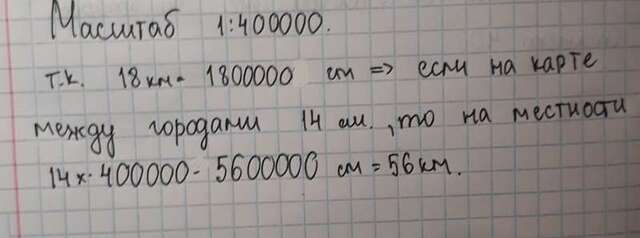 Масштаб 1:400000.
т.к. 18км = 1800000 см => если на карте
между городами 14 см., то на местности
14х·400000 - 5600000 см = 56км.